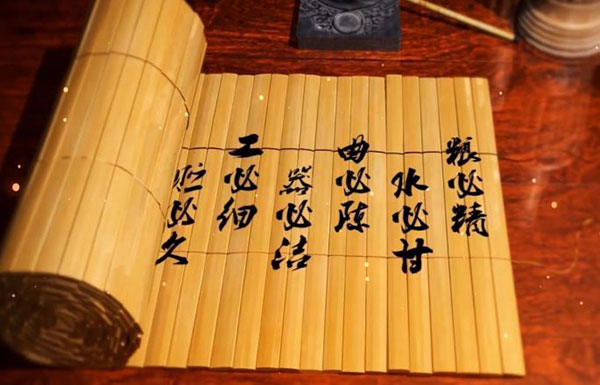 粮必精
水必甘
曲必陈
器必洁
工必细
贮必久